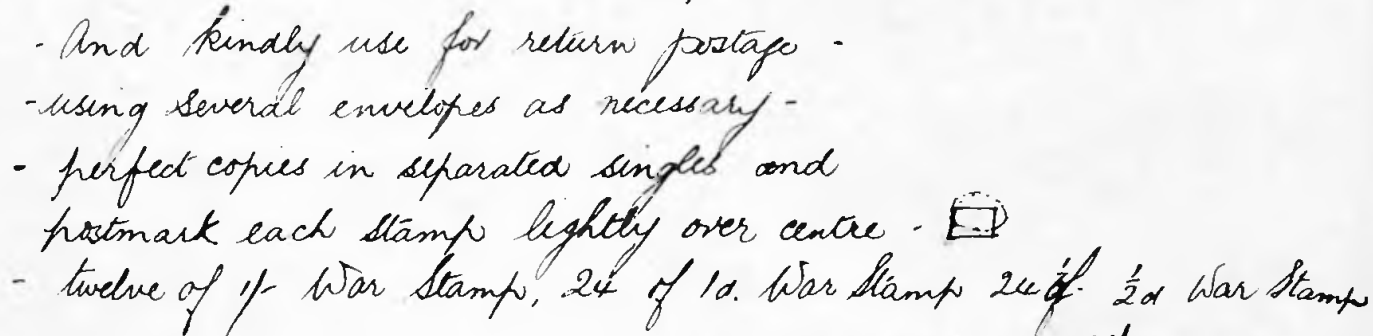 - And kindly use for return postage -
- using several envelopes as necessary -
- perfect copies in separated singles and
postmark each stamp lightly over centre -
- twelve of 1/- War Stamp, 24 of 1d. War Stamp 24 of ½d War Stamp